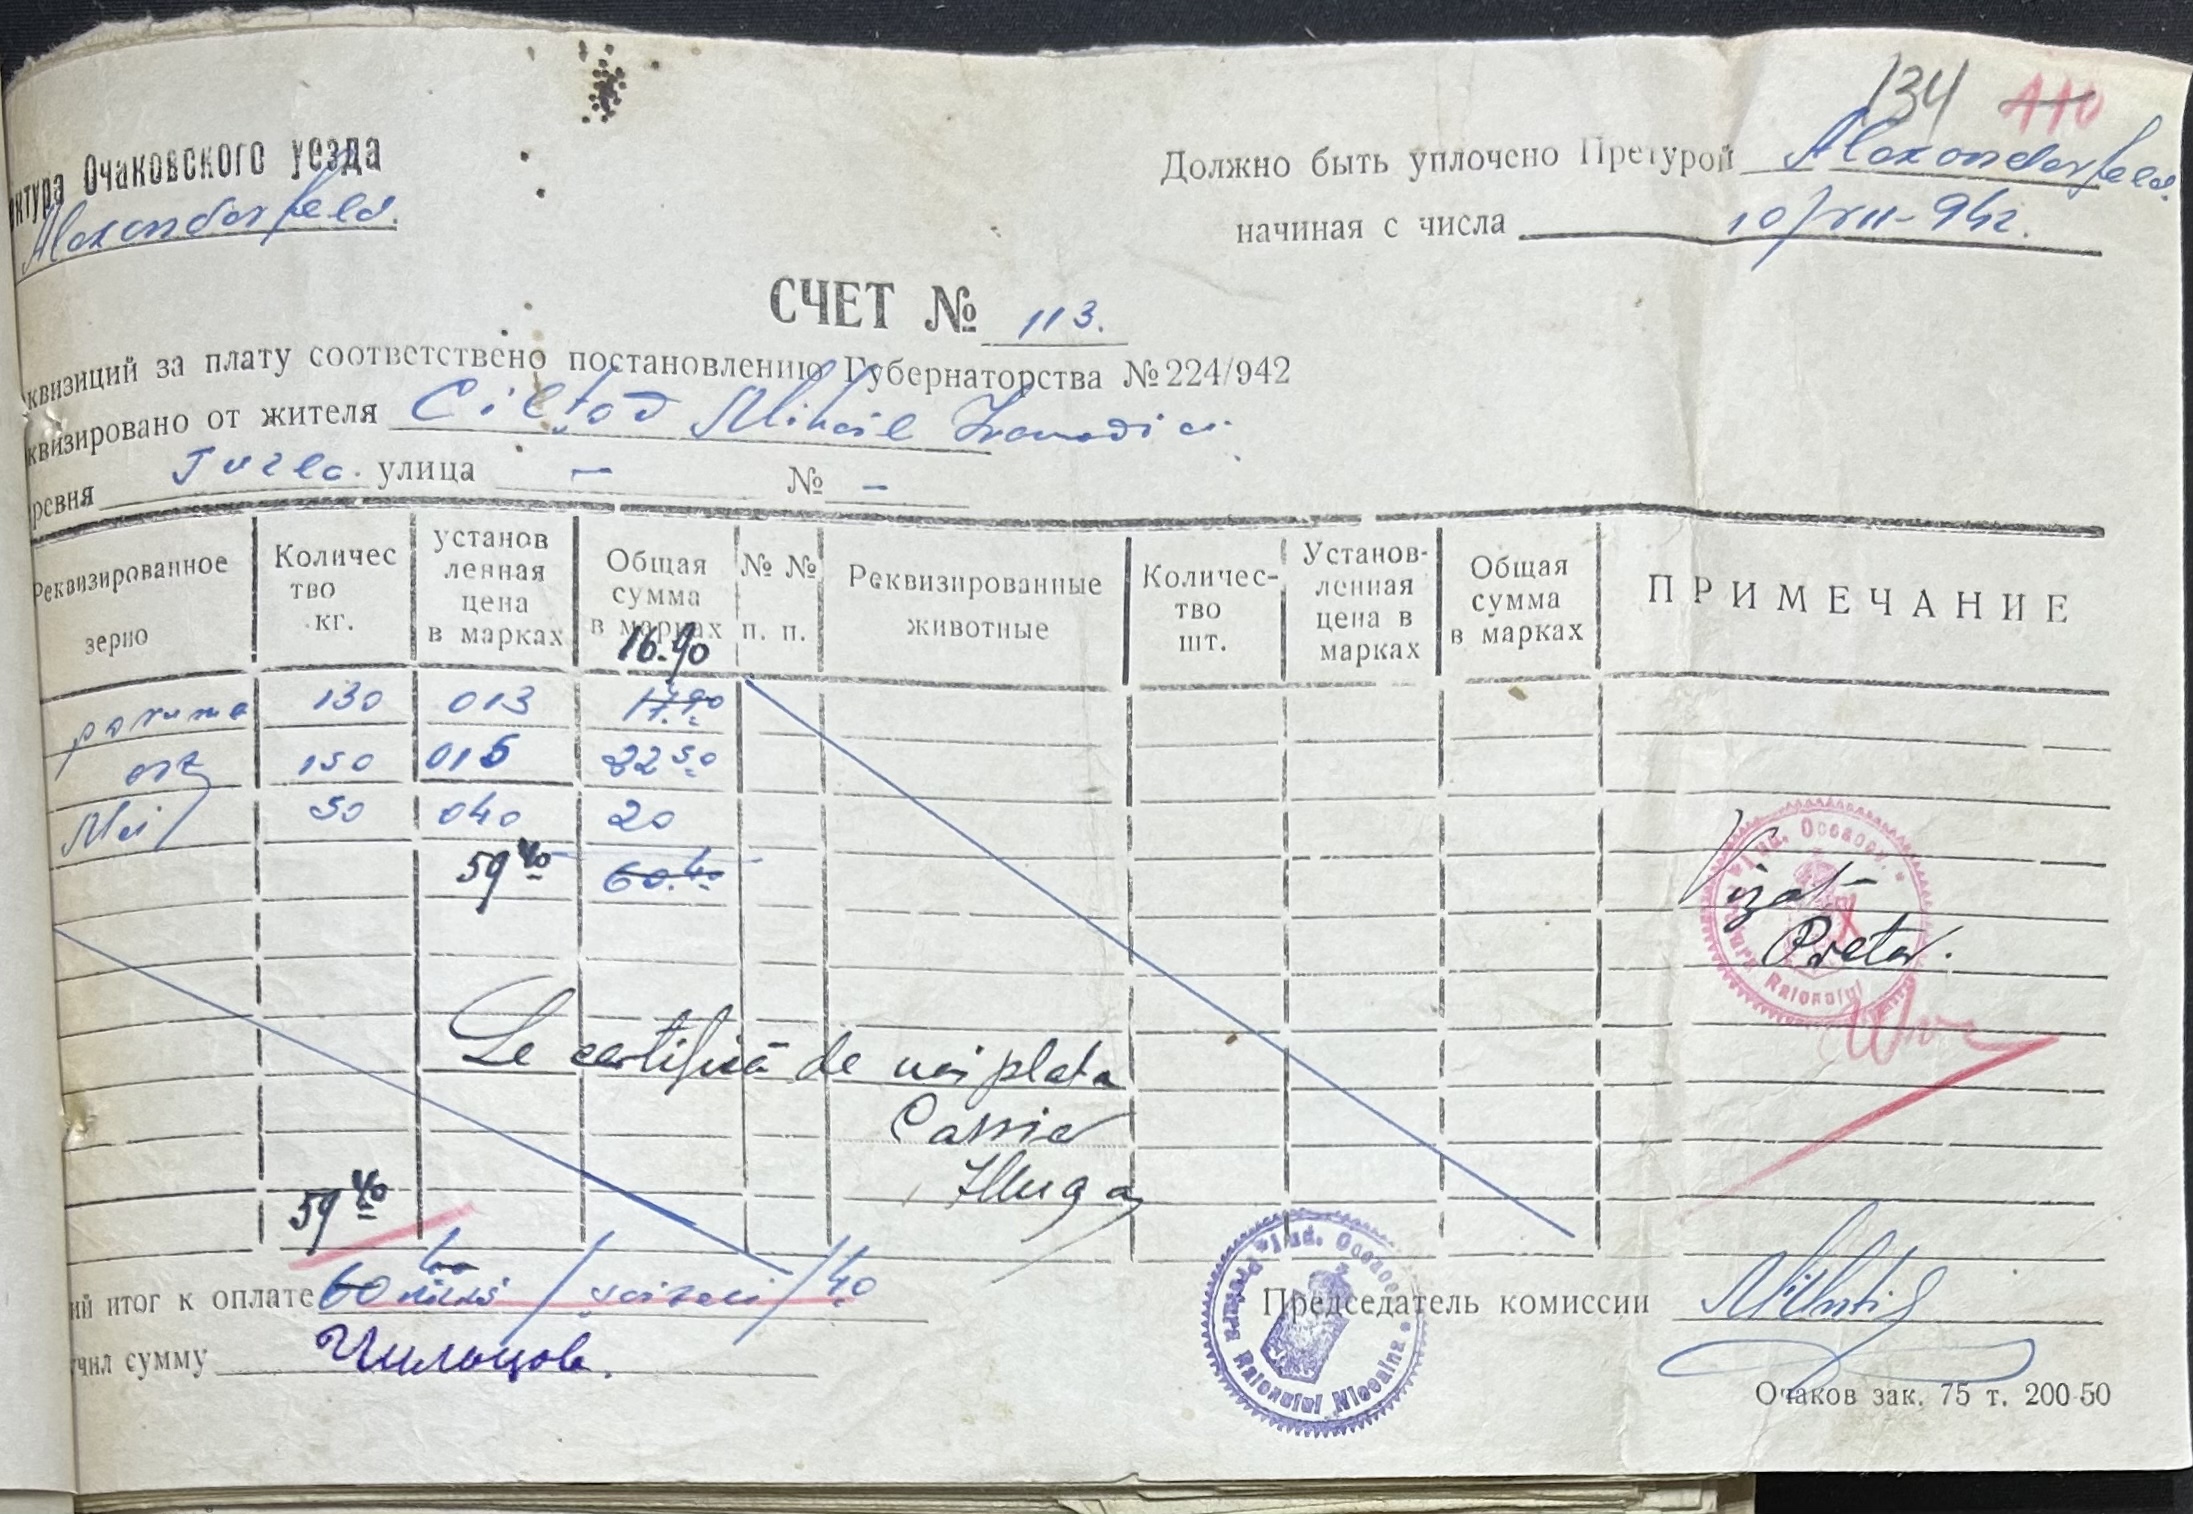 134 110
ктура Очаковского уезда
Alexanderfeld.
Должно быть уплочено Претурой Alexanderfeld.
начиная с числа 10/VII-942.
СЧЕТ № 113.
квизиций за плату соответствено постановлению Губернаторства № 224/942
квизировано от жителя Mihail
ревня улица - № -
Реквизированное зерно Количес тво кг. установ ленная цена в марках Общая сумма в марках № № п. п. Реквизированные животные Количес- тво шт. Установ- ленная цена в марках Общая сумма в марках ПРИМЕЧАНИЕ
16.90
130 013 17.90
orz 150 015 22 50
Mei 50 040 20
59 40 60.40
Vizat
Pretor.
Se certifică de noi plata
Cassier
59 40
ий итог к оплате 60 / /40
чил сумму
Председатель комиссии
Pretura Raionului Jud. Oceacov
Pretura Raionului Nicolaina Jud. Oceacov
Очаков зак. 75 т. 200-50